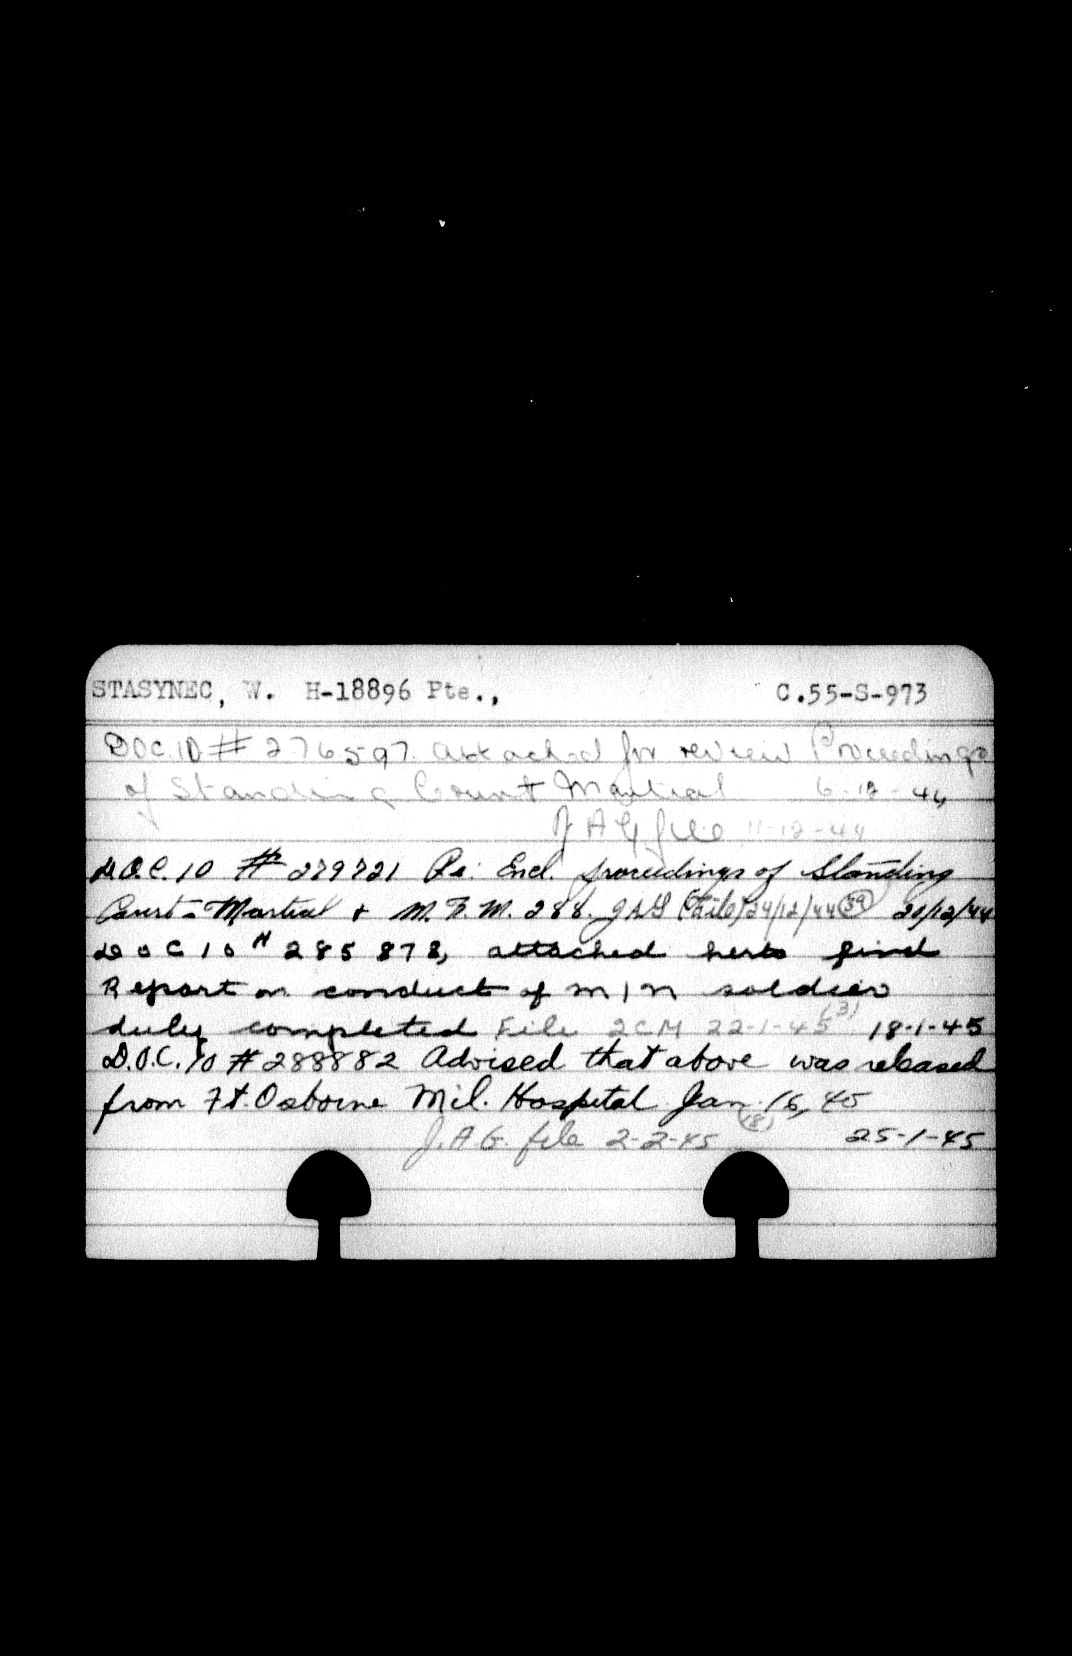 STASYNEC, W. H-18896 Pte., C.55-S-973
DOC.10 # 276597. attached for review Proceedings
of Standing Court Martial 6-12-44
J A G file 11-12-44
D.O.C. 10 # 279721 Re: Encl. proceedings of Standing
Court-Martial + M.F.M. 288. JAG (File) 24/12/44 (59) 20/12/44
D O C 10 # 285878, attached herto find
Report on conduct of m/n soldier
duly completed File 2CM 22-1-45 (3) 18-1-45
D.O.C. 10 # 288882 Advised that above was released
from Ft. Osborne Mil. Hospital Jan. 16, 45
J.A.G. file 2-2-45 (8) 25-1-45